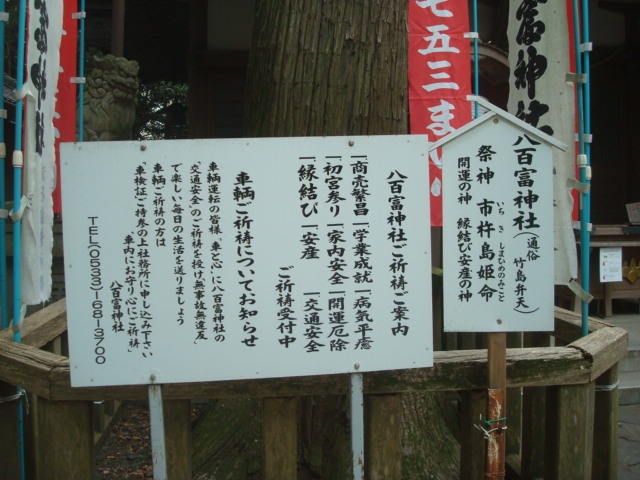 八百富神社（通俗 竹島弁天）
祭神 市杵島姫命
いちきしまひめのみこと
開運の神 縁結び安産の神
八百富神社ご祈祷ご案内
一、商売繁昌 一、学業成就 一、病気平癒
一、初宮参り 一、家内安全 一、開運厄除
一、縁結び 一、安産 一、交通安全
ご祈祷受付中
車輌ご祈祷についてお知らせ
車輌運転の皆様「車と心」に八百富神社の
「交通安全」のご祈祷を授け無事故無違反
で楽しい毎日の生活を送りましょう
車輌ご祈祷の方は
「車検証」ご持参の上社務所に申し込み下さい
「車内にお守り、心にご祈祷」
八百富神社
TEL(0533)-68-3700
七五三ま
富神社
富神社